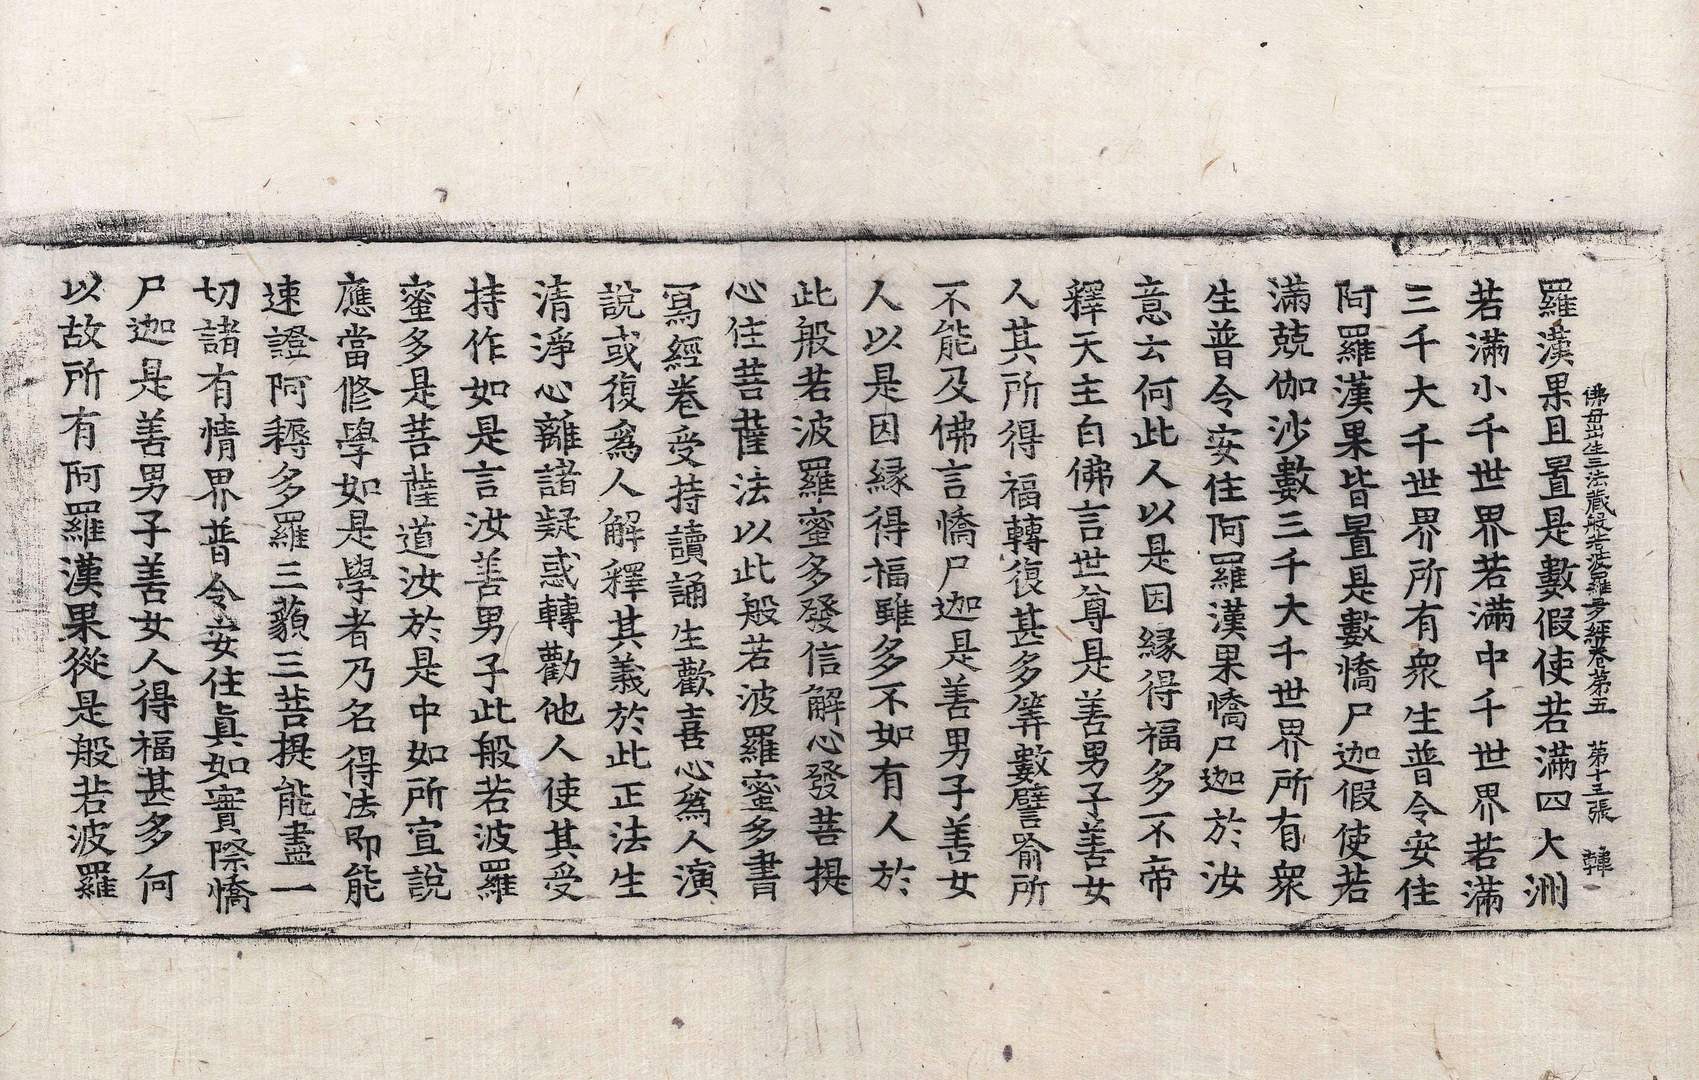 佛母出生三法藏般若波羅多經卷第五 第十五張 韓
羅漢果且置是數假使若滿四大洲
若滿小千世界若滿中千世界若滿
三千大千世界所有衆生普令安住
阿羅漢果皆置是數憍尸迦假使若
滿兢伽沙數三千大千世界所有衆
生普令安住阿羅漢果憍尸迦於汝
意云何此人以是因縁得福多不帝
釋天主白佛言世尊是善男子善女
人其所得福轉復甚多筭數譬喻所
不能及佛言憍尸迦是善男子善女
人以是因縁得福雖多不如有人於
此般若波羅蜜多發信解心發菩提
心住菩薩法以此般若波羅蜜多書
寫經卷受持讀誦生歡喜心爲人演
說或復爲人解釋其義於此正法生
清淨心離諸疑惑轉勸他人使其受
持作如是言汝善男子此般若波羅
蜜多是菩薩道汝於是中如所宣說
應當修學如是學者乃名得法即能
速證阿耨多羅三藐三菩提能盡一
切諸有情界普令安住眞如實際憍
尸迦是善男子善女人得福甚多何
以故所有阿羅漢果從是般若波羅